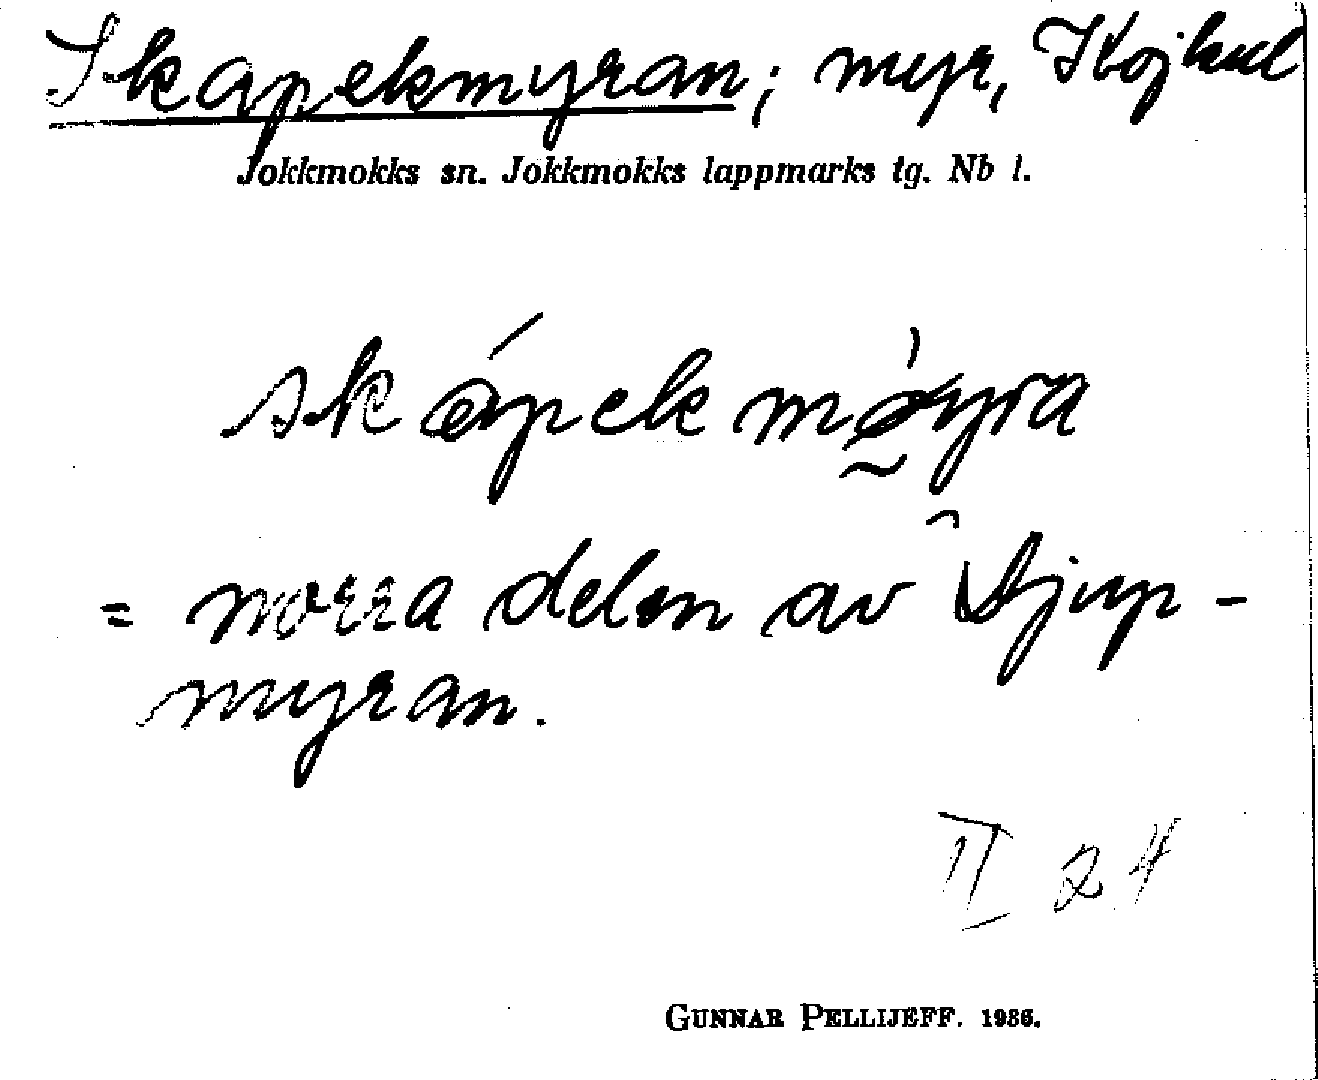 Skapekmyran; myr, Kojkul
Jokkmokks sn. Jokkmokks lappmarks tg. Nb l.
skápekmöyra
= norra delen av Djup-
myran.
II 24
GUNNAR PELLIJEFF. 1986.